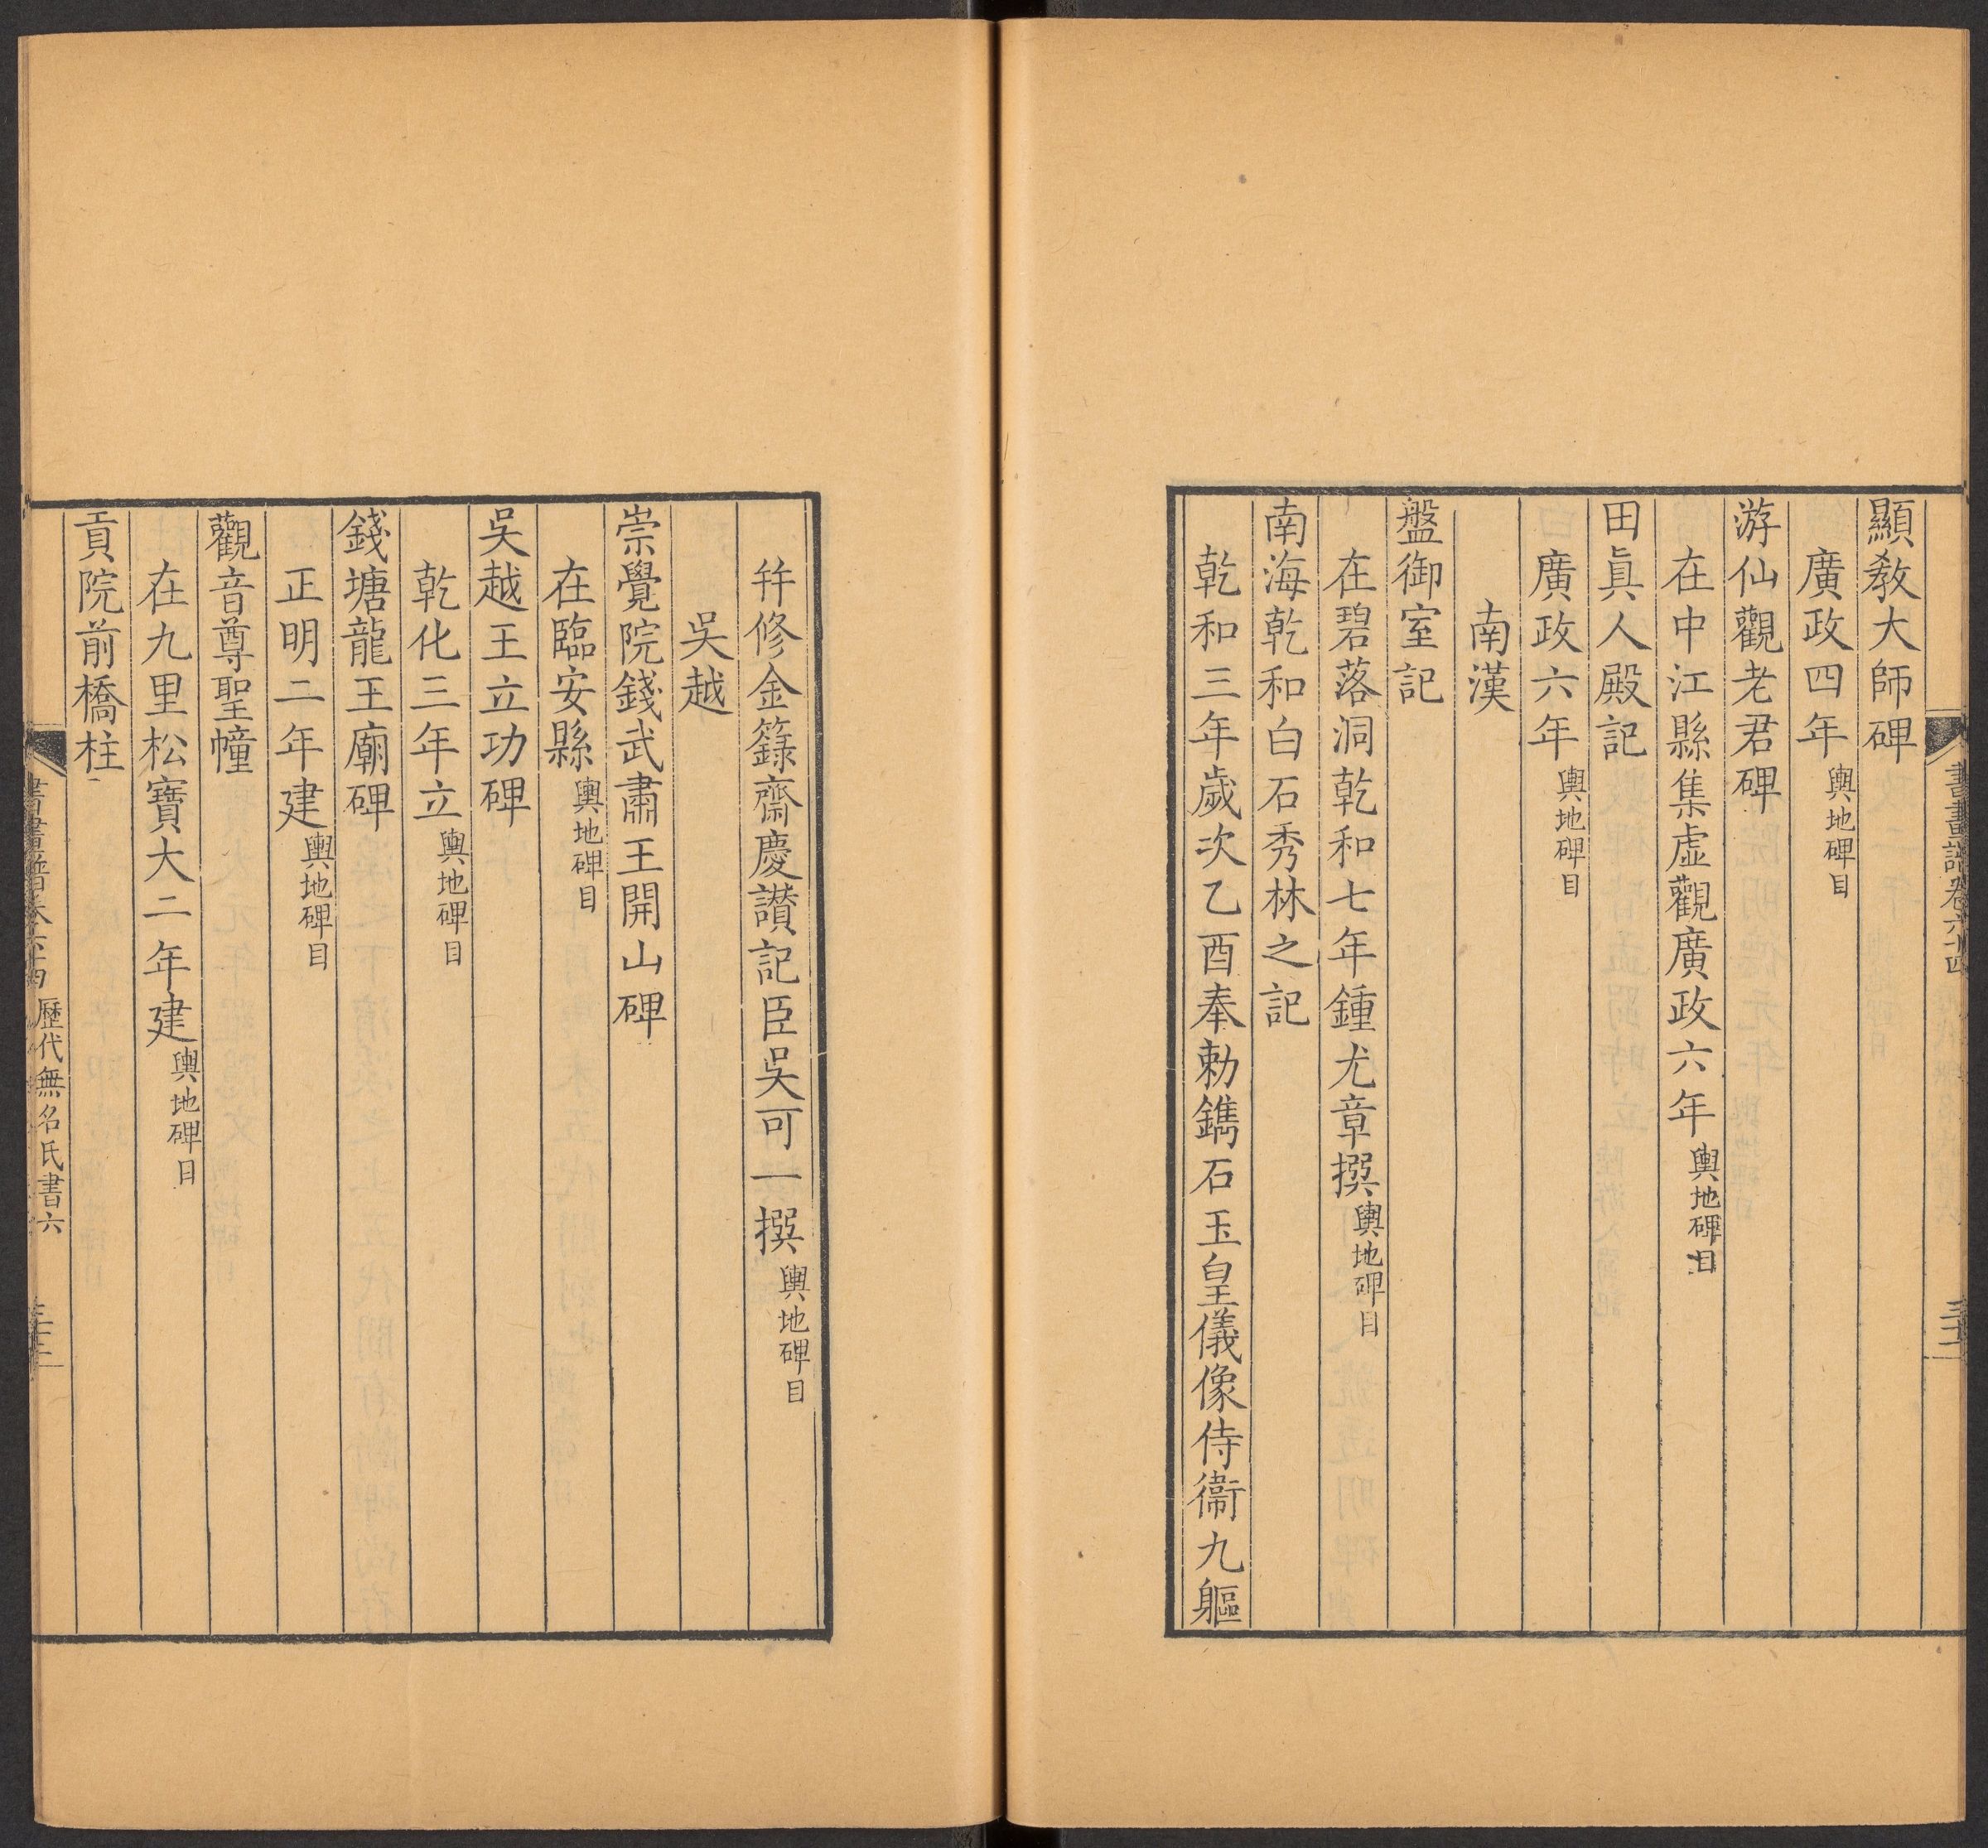 顯教大師碑
廣政四年輿地碑目
游仙觀老君碑
在中江縣集虛觀廣政六年輿地碑目
田眞人殿記
廣政六年輿地碑目
南漢
盤御室記
在碧落洞乾和七年鍾尤章撰輿地碑目
南海乾和白石秀林之記
乾和三年歲次乙酉奉勅鐫石玉皇儀像侍衞九軀
幷修金籙齋慶讃記臣吳可一撰輿地碑目
吳越
崇覺院錢武肅王開山碑
在臨安縣輿地碑目
吳越王立功碑
乾化三年立輿地碑目
錢塘龍王廟碑
正明二年建輿地碑目
觀音尊聖幢
在九里松寶大二年建輿地碑目
貢院前橋柱
書畫譜卷六十四
歷代無名氏書六